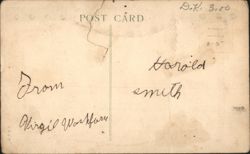 D.K. 3.00
POST CARD
Harold
Smith
From
Virgil